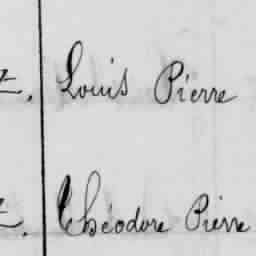 Louis Pierre
Théodore Pierre